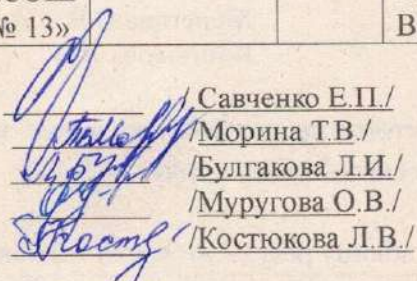 № 13»
В
/ Савченко Е.П./
/Морина Т.В./
/Булгакова Л.И./
/Муругова О.В./
/Костюкова Л.В./